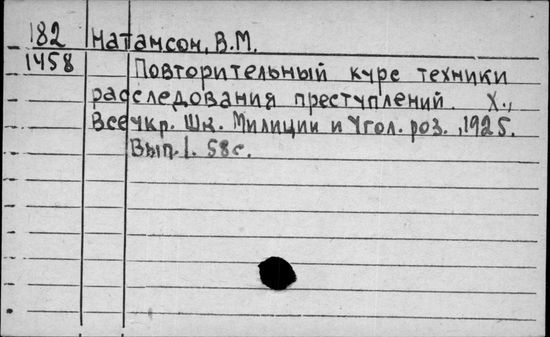 182 Натансон, В.М.
1458 Повторительный курс техники
расследования преступлений. Х.,
Всеукр. Шк. Милиции и Угол. роз., 1925.
Вып. I. 58 с.